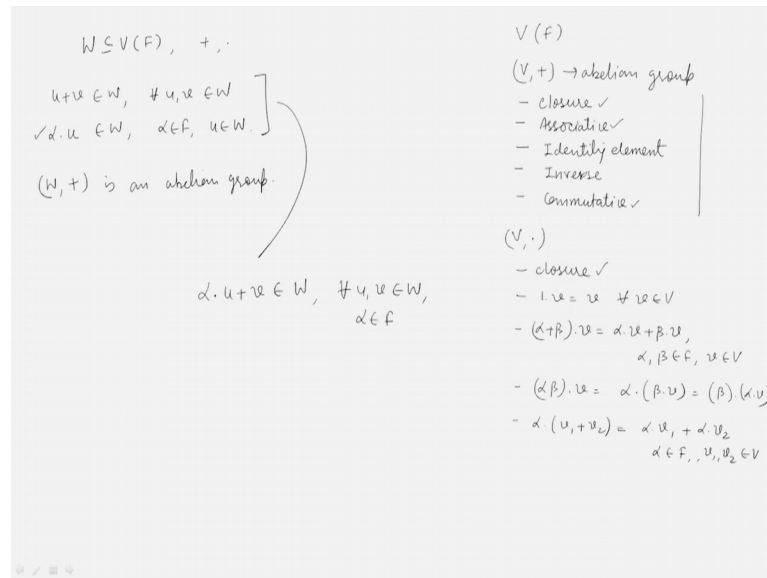 W ⊆ V(F), +, ·
u+v ∈ W, ∀ u,v ∈ W
✓α.u ∈ W, α ∈ F, u ∈ W.
(W, +) is an abelian group.
α.u+v ∈ W, ∀ u,v ∈ W,
α ∈ F
V(F)
(V, +) → abelian group
- closure ✓
- Associative ✓
- Identity element
- Inverse
- Commutative ✓
(V, ·)
- closure ✓
- 1.v = v ∀ v ∈ V
- (α+β).v = α.v+β.v,
α, β ∈ F, v ∈ V
- (αβ).v = α.(β.v) = (β).(α.v)
- α.(v₁+v₂) = α.v₁ + α.v₂
α ∈ F, v₁, v₂ ∈ V